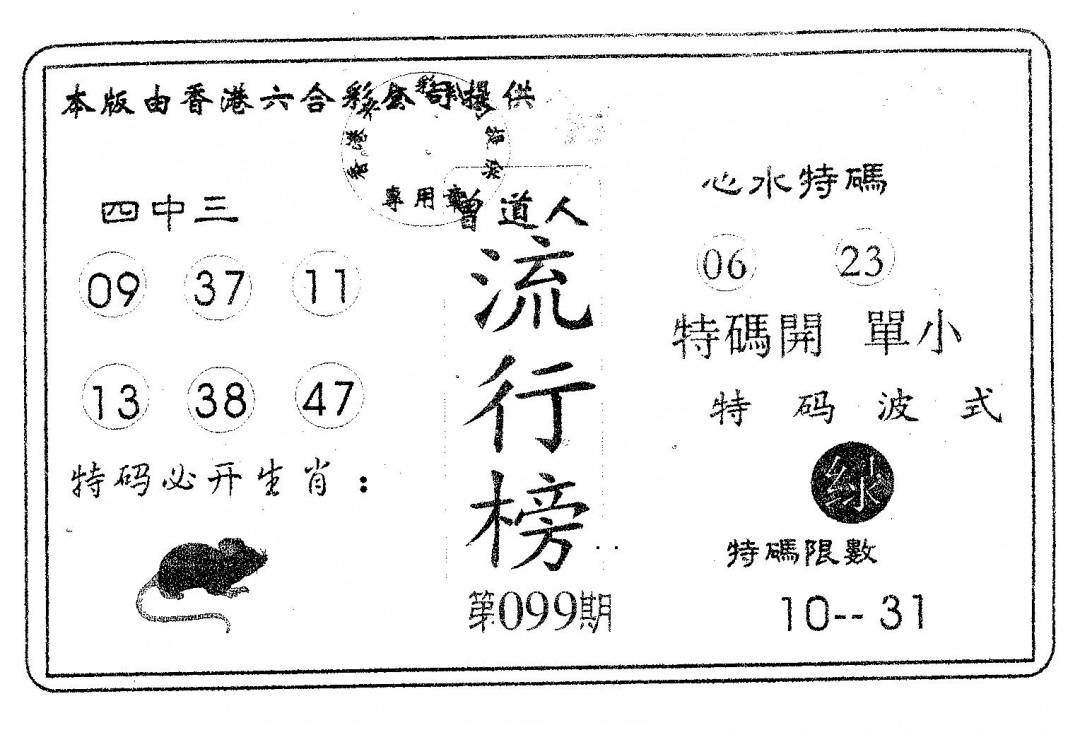 本版由香港六合彩公司提供
香港六合彩公司提供
專用章
四中三
09 37 11
13 38 47
特码必开生肖：
曾道人
流行榜
第099期
心水特碼
06 23
特碼開 單小
特码波式
绿
特碼限數
10-- 31